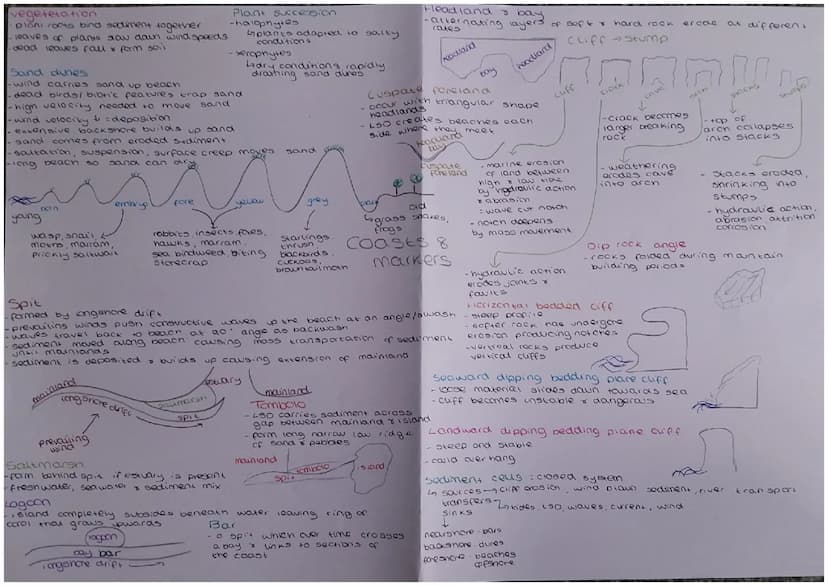 vegetetation
- plant roots bind sediment together
- leaves of plants slow down windspeeds
- dead leaves fall & form soil
Plant succession
- halophytes
↳ plants adapted to salty
conditions
- xerophytes
↳ dry conditions, rapidly
draining sand dunes
Sand dunes
- wind carries sand up beach
- dead birds/biotic features trap sand
- high velocity needed to move sand
- wind velocity ↓ = deposition
- extensive backshore builds up sand
- sand comes from eroded sediment
- saltation, suspension, surface creep moves sand
- long beach so sand can dry
embryo
fore
yellow
grey
young
old
wasp, snail,
moths, marram,
prickly saltwort
rabbits, insects, foxes,
hawks, marram,
sea bindweed, biting
stonecrop
starlings
thrush
blackbirds,
cuckoos,
brown tail moth
↳ grass snakes,
frogs
Coasts 8
markers
Spit
- formed by longshore drift
- prevailing winds push constructive waves up the beach at an angle/swash
- waves travel back to beach at 90° angle as backwash
- sediment moved along beach causing mass transportation of sediment
until mainlands
- sediment is deposited & builds up causing extension of mainland
mainland
longshore drift
saltmarsh
estuary
spit
prevailing
wind
mainland
Tombolo
- LSD carries sediment across
gap between mainland & island
- form long narrow low ridge
of sand & pebbles
mainland
spit
tombolo
island
Saltmarsh
- form behind spit if estuary is present
- freshwater, seawater & sediment mix
Lagoon
- island completely subsides beneath water leaving ring of
coral that grows upwards
lagoon
bay bar
longshore drift
Bar
- a spit which over time crosses
a bay & links to sections of
the coast
Headland & bay
- alternating layers of soft & hard rock erode at different
rates
headland
bay
headland
Cliff → Stump
cliff
crack
cave
arch
stacks
stumps
Cuspate foreland
- occur with triangular shape
headlands
- LSD creates beaches each
side where they meet
headland
bay
cuspate
foreland
- marine erosion
of land between
high & low tide
by hydraulic action
& abrasion
: wave cut notch
- notch deepens
by mass movement
- crack becomes
larger breaking
rock
- weathering
erodes cave
into arch
- top of
arch collapses
into stacks
- stacks eroded,
shrinking into
stumps
- hydraulic action,
abrasion attrition
corrosion
- hydraulic action
erodes joints &
faults
Dip rock angle
- rocks folded during mountain
building periods
Horizontal bedded cliff
- steep profile
- softer rock has undergone
erosion producing notches
- vertical rocks produce
vertical cliffs
Seaward dipping bedding plane cliff
- loose material slides down towards sea
- cliff becomes unstable & dangerous
Landward dipping bedding plane cliff
- steep and stable
- could overhang
Sediment cells : closed system
↳ sources → cliff erosion, wind blown sediment, river transport
transfers
↳ tides, LSD, waves, current, wind
sinks
nearshore - bars
backshore - dunes
foreshore - beaches
offshore